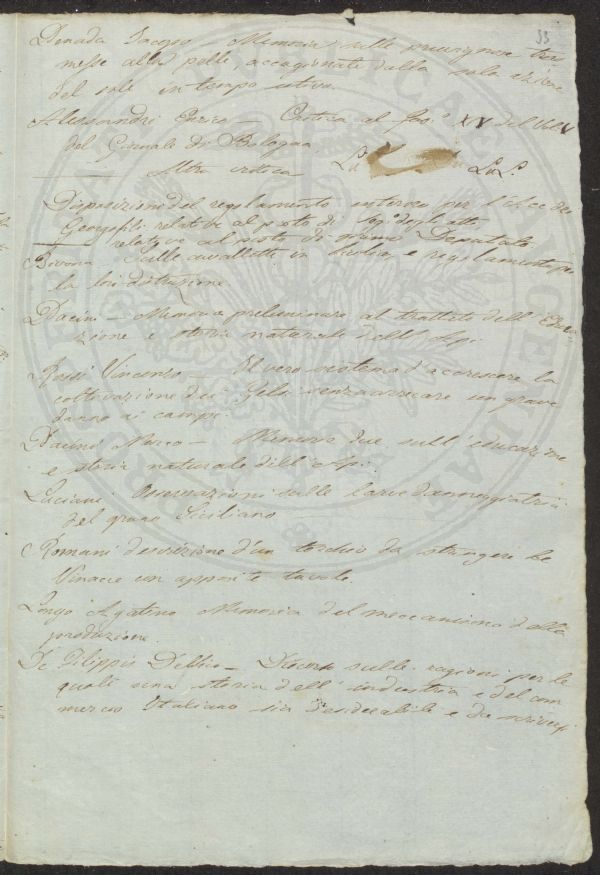 33
Denada Jacopo – Memoria sulle
messe alla pelle, accagionate dalla sola azione
del sole in tempo estivo.
Alessandri – Critica al fas.° XV del Vol. V
del Giornale di Bologna
Altra critica La La L.
Disposizioni del regolamento interno per l'
Georgofili relative al posto di
relative al posto di Deputato
Bivona Sulle cavallette in Sicilia, e regolamento per
la loi distruzione.
Dacini – Memoria preliminare al trattato dell' Educa
zione e storia naturale dell' Api.
Rossi Vincenzo – Il vero sistema d'accrescere la
coltivazione dei Gelsi senza arrecare un grave
danno ai campi.
Dacino Marco – Memorie due sull' educazione
e storia naturale dell' Api.
Luciani Osservazioni sulle larve danneggiatrici
del grano Siciliano
Romani descrizione d'un torchio da stringere le
Vinacce con apposite tavole.
Longo Agatino Memoria del meccanismo della
produzione.
De Filippis Delfico – Discorso sulle ragioni per le
quali una storia dell' industria e del com
mercio Italiano sia desiderabile e da scriversi